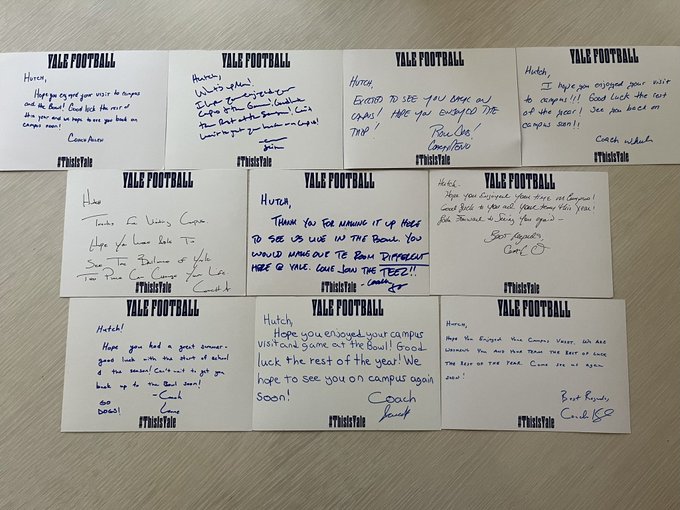 YALE FOOTBALL
Hutch,
Hope you enjoyed your visit to campus
and the Bowl! Good luck the rest of
this year and we hope to see you back on
campus soon!
Coach Allen
#ThisIsYale
YALE FOOTBALL
Hutch,
What's up Man!
I hope you enjoyed your
#ThisIsYale
YALE FOOTBALL
Hutch,
Excited to see you back on
campus! Hope you enjoyed the
trip!
#ThisIsYale
YALE FOOTBALL
Hutch,
I hope you enjoyed your visit
to campus!!! Good luck the rest
of the year! See you back on
campus soon!!
Coach
#ThisIsYale
YALE FOOTBALL
Hutch
Thanks For Visiting Campus.
Hope You Were Able To
See The Brilliance of Yale
The Place Can Change Your Life.
Coach
#ThisIsYale
YALE FOOTBALL
Hutch,
Thank you for making it up here
to see us live in the Bowl. You
would make our TE room DIFFERENT
here @ Yale. Come join the TEZ!!
-Coach
#ThisIsYale
YALE FOOTBALL
Hutch-
Hope you Enjoyed your time on Campus!
Good luck to you and your team this year!
Look Forward to Seeing You again-
Best regards,
#ThisIsYale
YALE FOOTBALL
Hutch!
Hope you had a great summer-
good luck with the start of school
& the season! Can't wait to get you
back up to the Bowl soon!
-Coach
GO
DOGS!
#ThisIsYale
YALE FOOTBALL
Hutch,
Hope you enjoyed your campus
visit and game at the Bowl! Good
luck the rest of the year! We
hope to see you on campus again
soon!
Coach
#ThisIsYale
YALE FOOTBALL
Hutch,
Hope You Enjoyed Your Campus Visit. We are
wishing you and your team the best of luck
the rest of the year. Come see us again
soon!
Best Regards,
Coach
#ThisIsYale